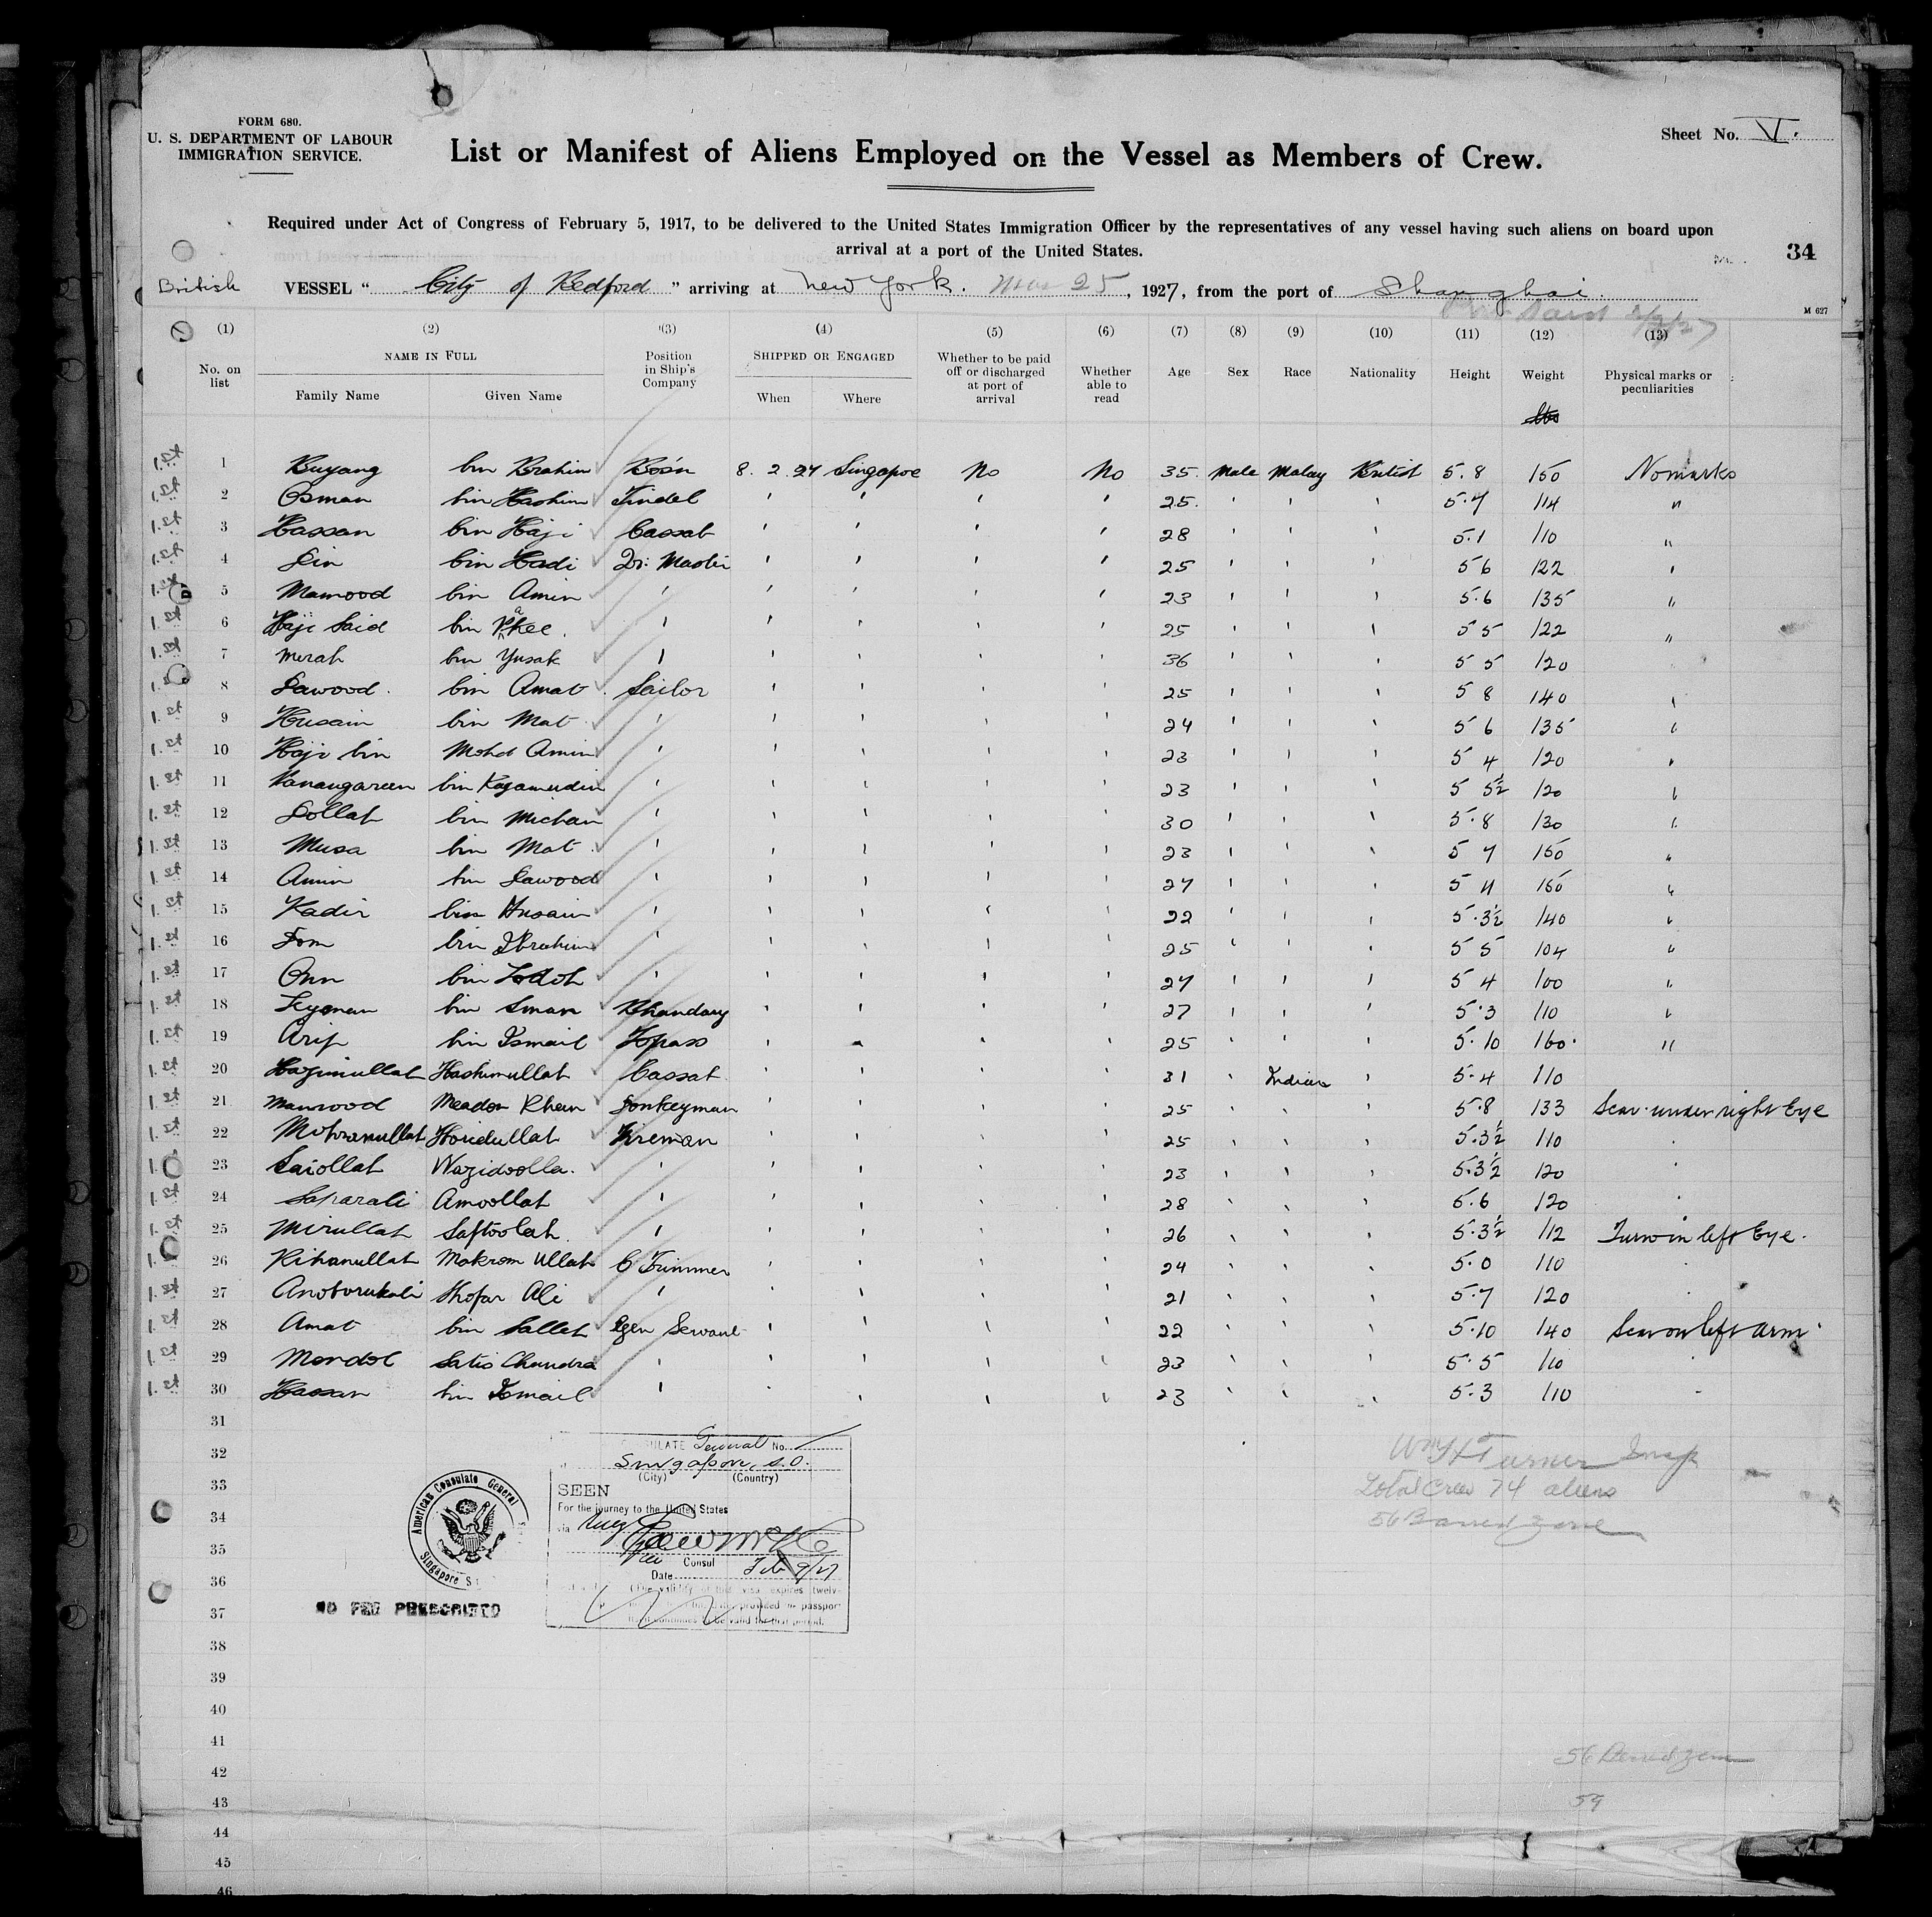 FORM 680.
U. S. DEPARTMENT OF LABOUR
IMMIGRATION SERVICE.
List or Manifest of Aliens Employed on the Vessel as Members of Crew.
Sheet No. V.
Required under Act of Congress of February 5, 1917, to be delivered to the United States Immigration Officer by the representatives of any vessel having such aliens on board upon
arrival at a port of the United States.
34
British VESSEL " City of Bedford " arriving at New York. 25, 1927, from the port of Shanghai.
M 627
(1) (2) (3) (4) (5) (6) (7) (8) (9) (10) (11) (12) (13)
No. on list NAME IN FULL Family Name Given Name Position in Ship's Company SHIPPED OR ENGAGED When Where Whether to be paid off or discharged at port of arrival Whether able to read Age Sex Race Nationality Height Weight Physical marks or peculiarities
1.st 1 Buyang bin Brahim Bosn 8. 2. 27 Singapoe No No 35 Male Malay British 5.8 150 No marks
1.st 2 Osman bin Hashim Tindel ' ' ' ' 25. ' ' ' 5.7 114 "
1.st 3 Hassan bin Haji Cassab ' ' ' ' 28 ' ' ' 5.1 110 "
1.st 4 bin Hadi ' ' ' ' 25 ' ' ' 5 6 122 '
1.st 5 Mamood bin Amin ' ' ' ' ' 23 ' ' ' 5.6 135 "
1.st 6 Haji Said bin ' ' ' ' ' 25 ' ' ' 5 5 122 "
1.st 7 Merah bin Yusak ' ' ' ' ' 36 ' ' ' 5 5 120
1.st 8 Dawood bin Amat Sailor ' ' ' ' 25 ' ' ' 5 8 140 '
1.st 9 Husain bin Mat ' ' ' ' ' 24 ' ' ' 5 6 135 '
1.st 10 Haji bin Mohd Amin ' ' ' ' ' 23 ' ' ' 5 4 120 '
1.st 11 bin ' ' ' ' ' 23 ' ' ' 5 5½ 120 '
1.st 12 Dollah bin Michan ' ' ' ' ' 30 ' ' ' 5.8 130 '
1.st 13 Musa bin Mat ' ' ' ' ' 23 ' ' ' 5 7 150 "
1.st 14 Amin bin Dawood ' ' ' ' ' 27 ' ' ' 5 150 "
1.st 15 Kadir bin Husain ' ' ' ' ' 22 ' ' ' 5.3½ 140 "
1.st 16 bin Ibrahim ' ' ' ' ' 25 ' ' ' 5 5 104 "
1.st 17 Onn bin ' ' ' ' ' 27 ' ' ' 5 4 100 "
1.st 18 bin Sman Bhandary ' ' ' ' 27 ' ' ' 5.3 110 "
1.st 19 Arip bin Ismail Topass ' ' ' ' 25 ' ' ' 5.10 160 "
1.st 20 Hazimullah Hashimullah Cassab ' ' ' ' 31 ' Indian ' 5.4 110
1.st 21 Mamood Khan Donkeyman ' ' ' ' 25 ' ' ' 5.8 133 Scar under right Eye
1.st 22 Fireman ' ' ' ' 25 ' ' ' 5.3½ 110 '
23 Saiollah Wazidoolla. ' ' ' ' ' 23 ' ' ' 5.3½ 120 '
1.st 24 Safarali Amoollah ' ' ' ' ' 28 ' ' 5.6 120 '
1.st 25 Mirullah Saftoolah ' ' ' ' ' 26 ' ' ' 5.3½ 112 Turn in left Eye.
26 Rihanullah Makrom Ullah C Trimmer ' ' ' ' 24 ' ' ' 5.0 110
1.st 27 Ali ' ' ' ' ' 21 ' ' ' 5.7 120
1.st 28 Amat bin Salleh Servant ' ' ' ' 22 ' ' ' 5.10 140 Scar on left arm
1.st 29 Mondol Satis Chandra ' ' ' ' ' 23 ' ' ' 5.5 110
1.st 30 Hassan bin Ismail ' ' ' ' ' 23 ' ' ' 5.3 110
31
32
33
34
35
36
37
38
39
40
41
42
43
44
45
46
American Consulate General
Singapore S
General No.
Singapore, S.S.
(City) (Country)
SEEN
For the journey to the United States
via Suez
Consul
Date Feb 9/27
NO FEE PRESCRIBED
Turner Insp
Total Crew 74 aliens
56 Barred zone
56 Barred zone
59